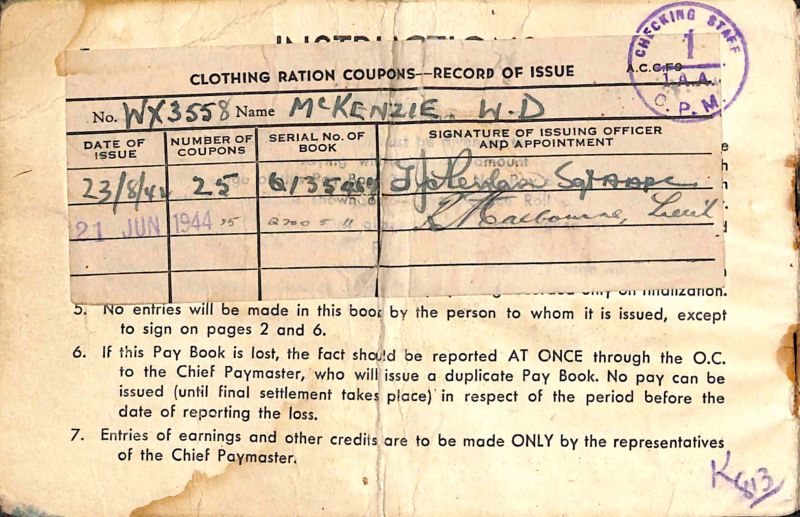 INSTRUCTIONS
CHECKING STAFF
1
1.A.A.
O.P.M.
CLOTHING RATION COUPONS—RECORD OF ISSUE
A.C.C.F9
No. WX3558 Name McKENZIE. W.D
DATE OF ISSUE
NUMBER OF COUPONS
SERIAL No. OF BOOK
SIGNATURE OF ISSUING OFFICER AND APPOINTMENT
23/8/42 25
21 JUN 1944 Lieut
only on finalization.
5. No entries will be made in this book by the person to whom it is issued, except
to sign on pages 2 and 6.
6. If this Pay Book is lost, the fact should be reported AT ONCE through the O.C.
to the Chief Paymaster, who will issue a duplicate Pay Book. No pay can be
issued (until final settlement takes place) in respect of the period before the
date of reporting the loss.
7. Entries of earnings and other credits are to be made ONLY by the representatives
of the Chief Paymaster.